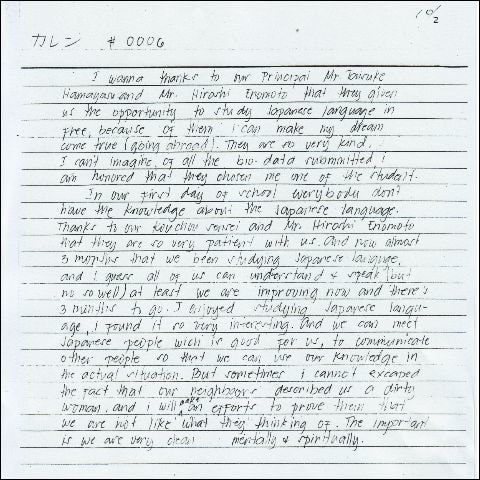 10/2
カレン # 0006
I wanna thanks to our Principal Mr. Daisuke
Hamayasu and Mr. Hiroshi Enomoto that they given
us the opportunity to study Japanese language in
free, because of them i can make my dream
come true (going abroad). They are so very kind.
I can't imagine of all the bio-data submmitted i
am honored that they chosen me one of the student.
In our first day of school everybody don't
have the knowledge about the Japanese language.
Thanks to our sensei and Mr. Hiroshi Enomoto
that they are so very patient with us. And now almost
3 months that we been studying Japanese languge,
and i guess all of us can understand & speak (but
no so well) at least we are improving now and there's
3 months to go. I enjoyed studying Japanese langu-
age, i found it so very interesting. And we can meet
Japanese people wich is good for us, to communicate
other people so that we can use our knowledge in
the actual situation. But sometimes i cannot excaped
the fact that our neighbours described us a dirty
woman. and i will make an efforts to prove them that
we are not like what they thinking of. The important
is we are very clean mentally & spiritually.